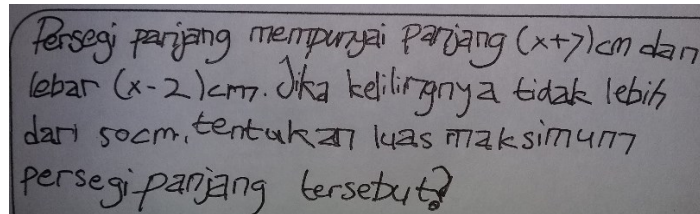 Persegi panjang mempunyai panjang (x+7)cm dan
lebar (x-2)cm. Jika kelilingnya tidak lebih
dari 50cm, tentukan luas maksimum
persegi panjang tersebut?